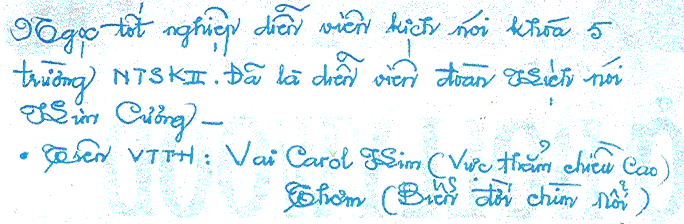 Ngọc tốt nghiệp diễn viên kịch nói khóa 5
trường NTSKII. Đã là diễn viên đoàn Kịch nói
Kim Cương –
• Trên VTTH: Vai Carol Kim (Vực thẳm chiều cao)
Thơm (Biển đời chìm nổi)